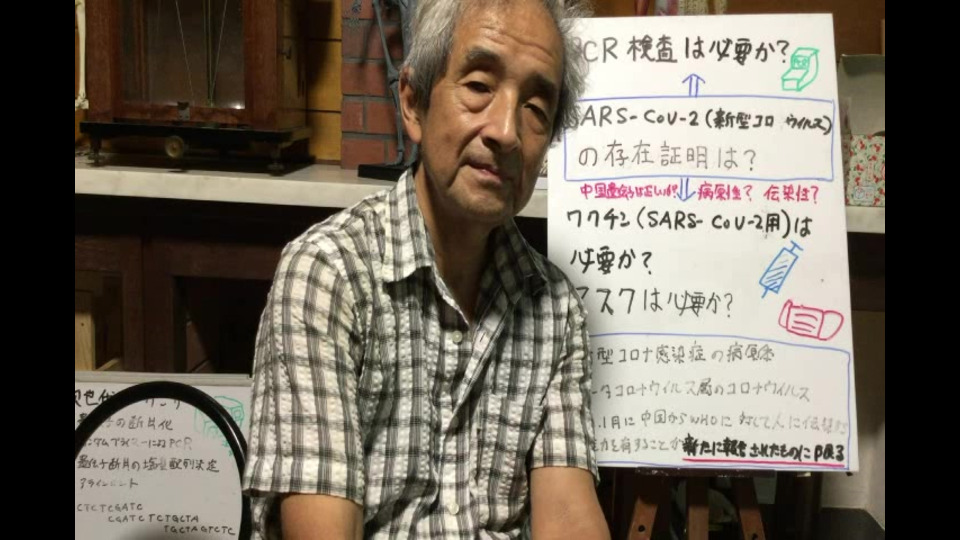 PCR検査は必要か?
SARS-CoV-2(新型コロ ウイルス)
の存在証明は?
病原性? 伝染性?
ワクチン(SARS-CoV-2用)は
必要か?
マスクは必要か?
型コロナ感染症の病原体
コロナウイルス属のコロナウイルス
1月に中国からWHOに対して人に伝染
力を有することが新たに報告されたものに限る
の断片化
ンダムプライマーによるPCR
遺伝子断片の塩基配列決定
アラインメント
CTCTCGATC
CGATCTCTGCTA
TGCTAGTCTC